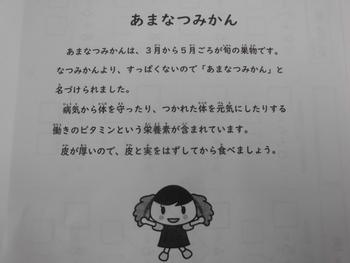 あまなつみかん
あまなつみかんは、３月から５月ごろが旬の果物です。
なつみかんより、すっぱくないので「あまなつみかん」と
名づけられました。
病気から体を守ったり、つかれた体を元気にしたりする
働きのビタミンという栄養素が含まれています。
皮が厚いので、皮と実をはずしてから食べましょう。